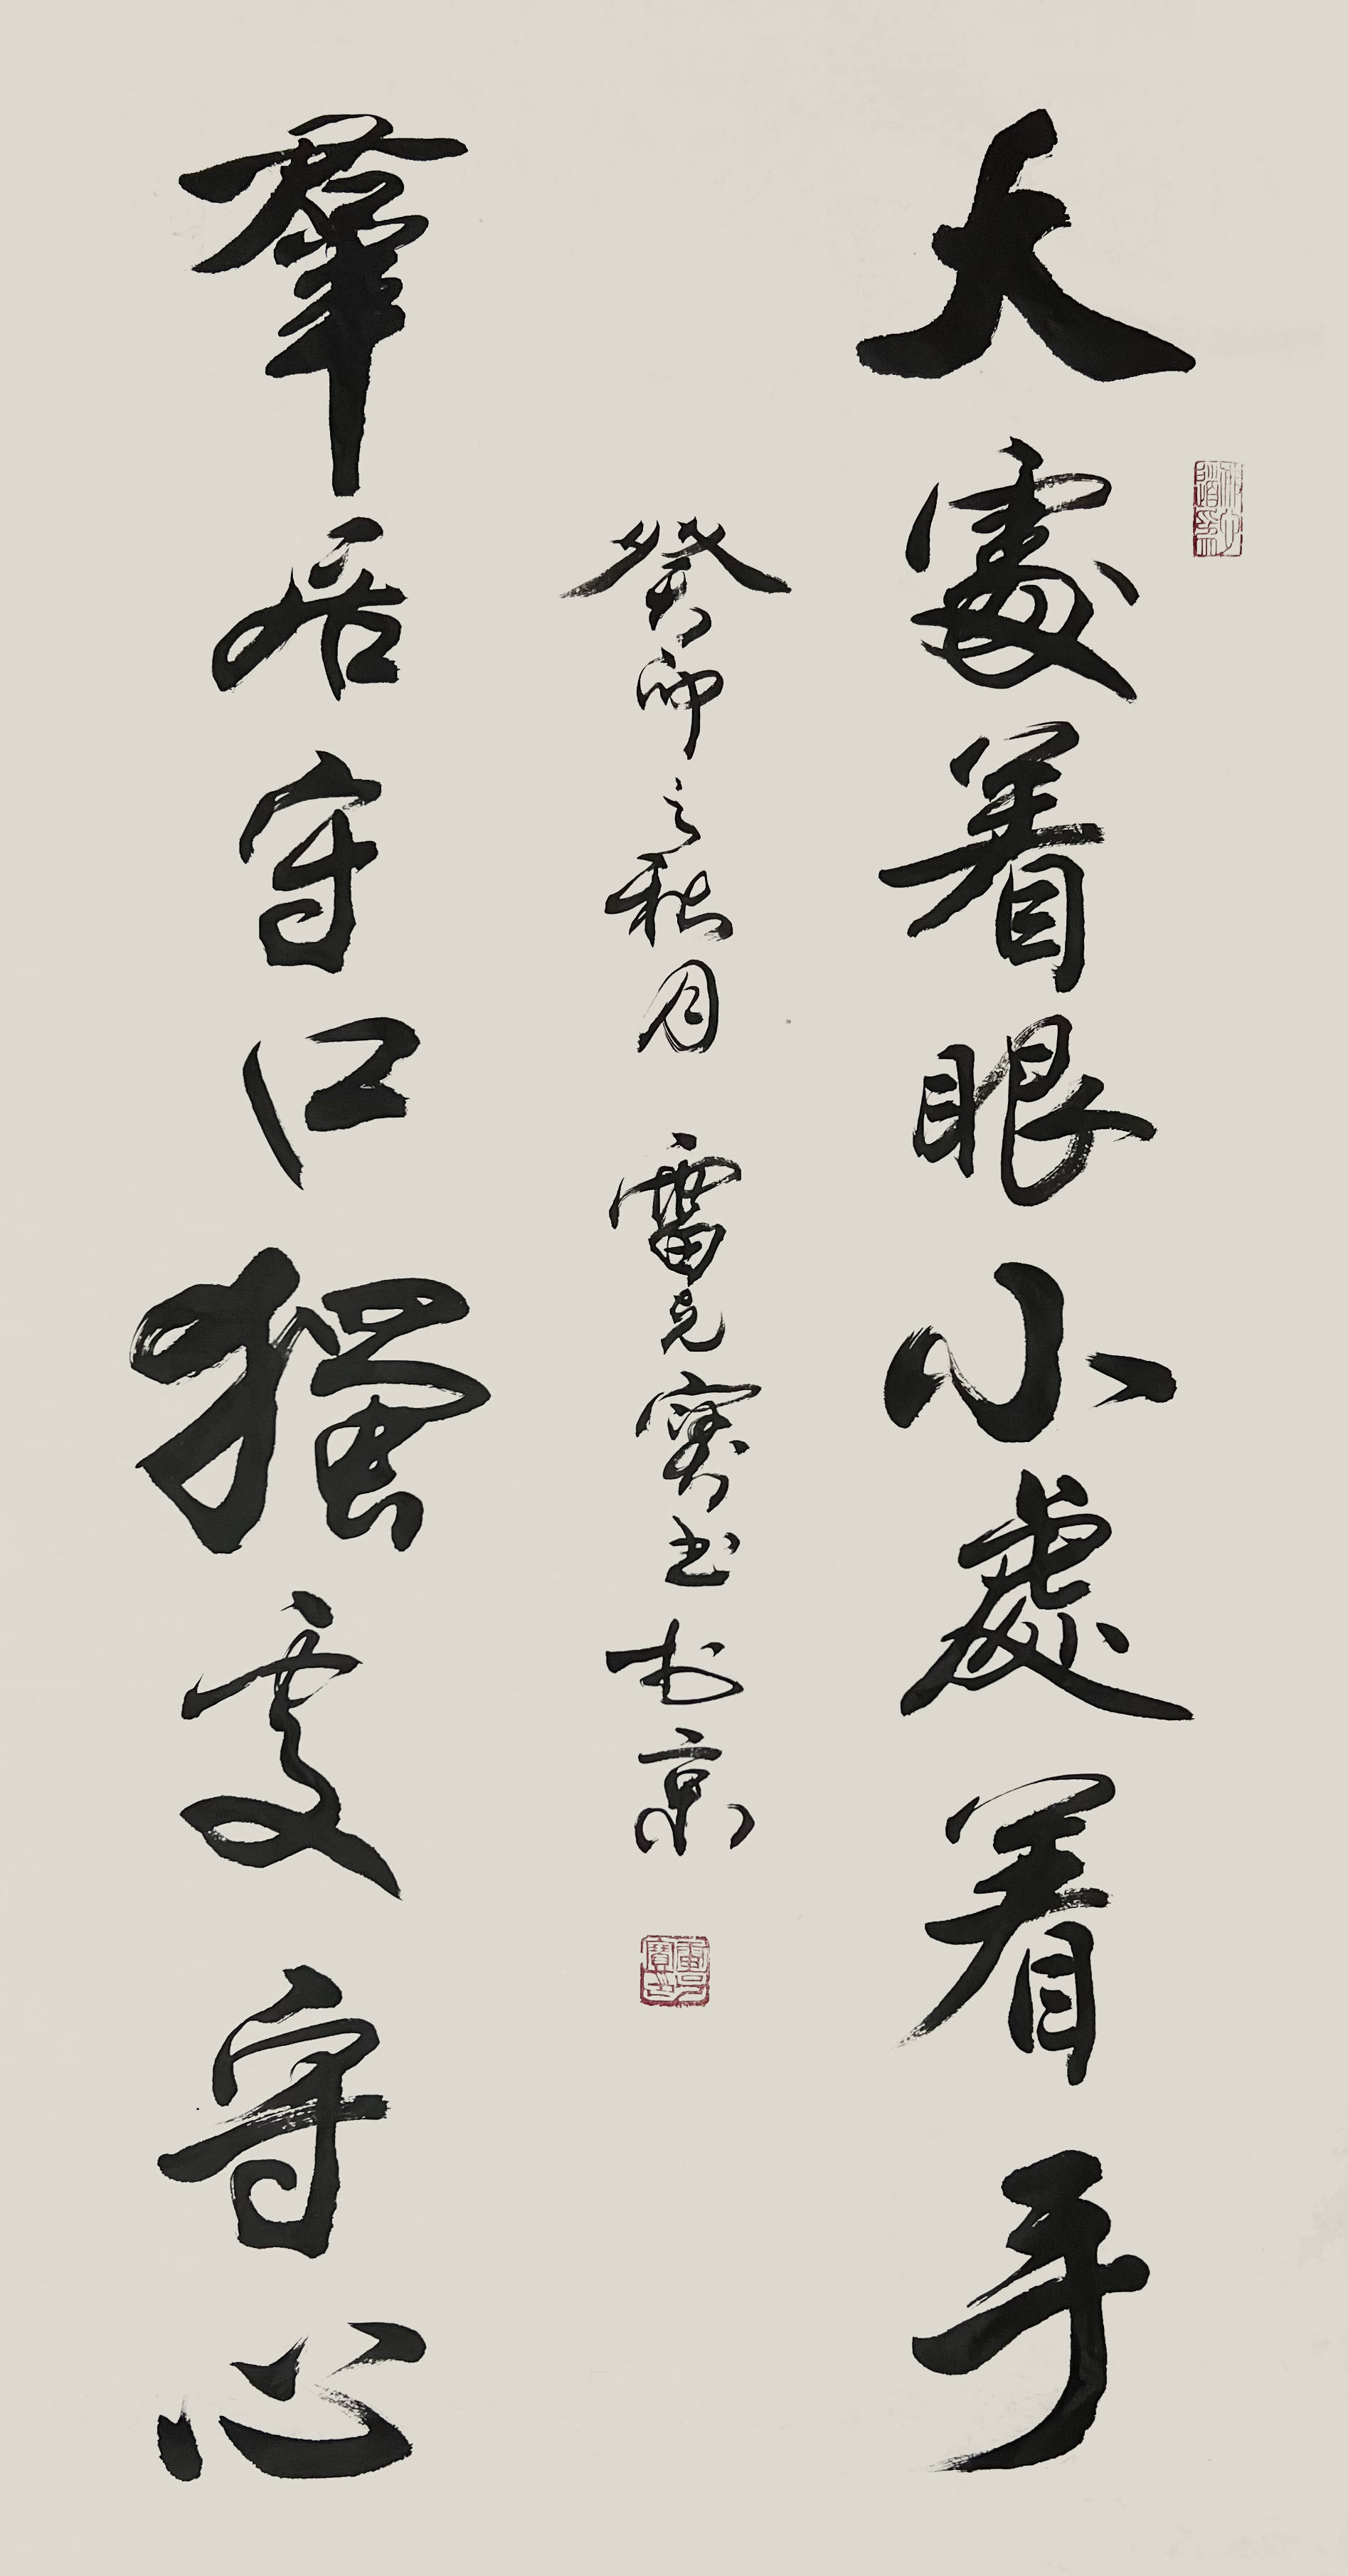 大處着眼小處着手
羣居守口獨處守心
癸卯之秋月 雷克寶書於京